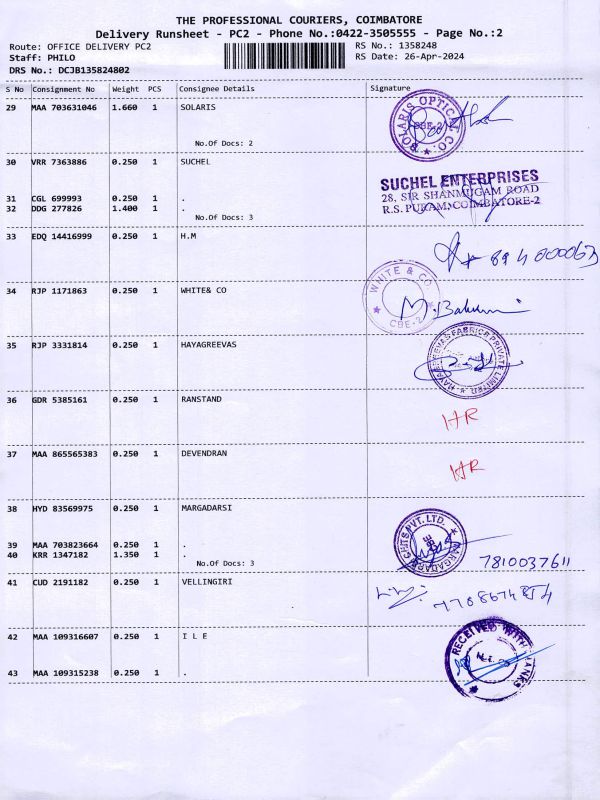 THE PROFESSIONAL COURIERS, COIMBATORE
Delivery Runsheet - PC2 - Phone No.:0422-3505555 - Page No.:2
Route: OFFICE DELIVERY PC2 RS No.: 1358248
Staff: PHILO RS Date: 26-Apr-2024
DRS No.: DCJB135824802
S No Consignment No Weight PCS Consignee Details Signature
29 MAA 703631046 1.660 1 SOLARIS
SOLARIS OPTIC & CO. CBE-2
No.Of Docs: 2
30 VRR 7363886 0.250 1 SUCHEL
SUCHEL ENTERPRISES
28, SIR SHANMUGAM ROAD
R.S. PURAM, COIMBATORE-2
31 CGL 699993 0.250 1 .
32 DDG 277826 1.400 1 .
No.Of Docs: 3
33 EDQ 14416999 0.250 1 H.M
34 RJP 1171863 0.250 1 WHITE& CO
WHITE & CO. CBE-2
35 RJP 3331814 0.250 1 HAYAGREEVAS
HAYAGREEVAS FABRICS PRIVATE LIMITED
36 GDR 5385161 0.250 1 RANSTAND
HR
37 MAA 865565383 0.250 1 DEVENDRAN
HR
38 HYD 83569975 0.250 1 MARGADARSI
39 MAA 703823664 0.250 1 .
40 KRR 1347182 1.350 1 .
No.Of Docs: 3
MARGADARSI CHITS PVT. LTD.
7810037611
41 CUD 2191182 0.250 1 VELLINGIRI
42 MAA 109316607 0.250 1 I L E
RECEIVED WITH THANKS
43 MAA 109315238 0.250 1 .